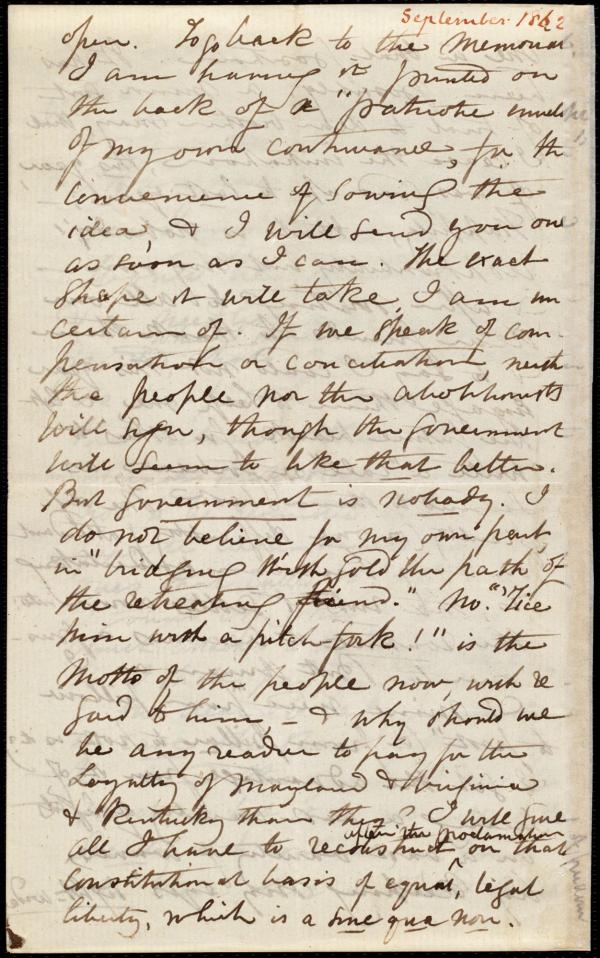 September 1862
open. To go back to the Memorial
I am having it printed on
the back of a "patriotic
of my own contrivance, for the
convenience of sowing the
idea, & I will send you one
as soon as I can. The exact
shape it will take, I am un
certain of. If we speak of com-
pensation or conciliation, neith
the people nor the abolitionists
will sign, though the Government
will seem to like that better.
But Government is nobody. I
do not believe for my own part
in "bridging with gold the path of
the retreating fiend." No. "
him with a pitch-fork!" is the
motto of the people now, with re
gard to him, — & why should we
be any readier to pay for the
Loyalty of Maryland & Virginia
& Kentucky than this? I will give
all I have to reconstruct on that
after the proclamation
constitutional basis of equal, legal
liberty, which is a sine qua non.